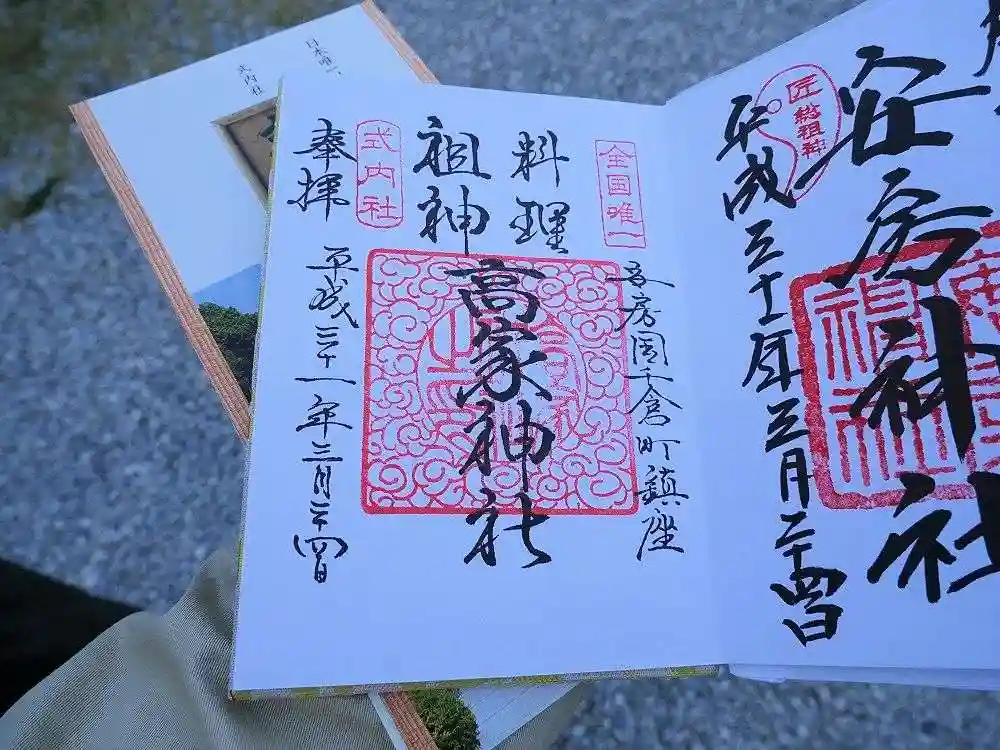 安房神社
匠総祖神
平成三十一年三月二十四日
全国唯一
安房国千倉町鎮座
料理
祖神
高家神社
式内社
奉拝
平成三十一年三月二十四日
日本唯一、
式内社